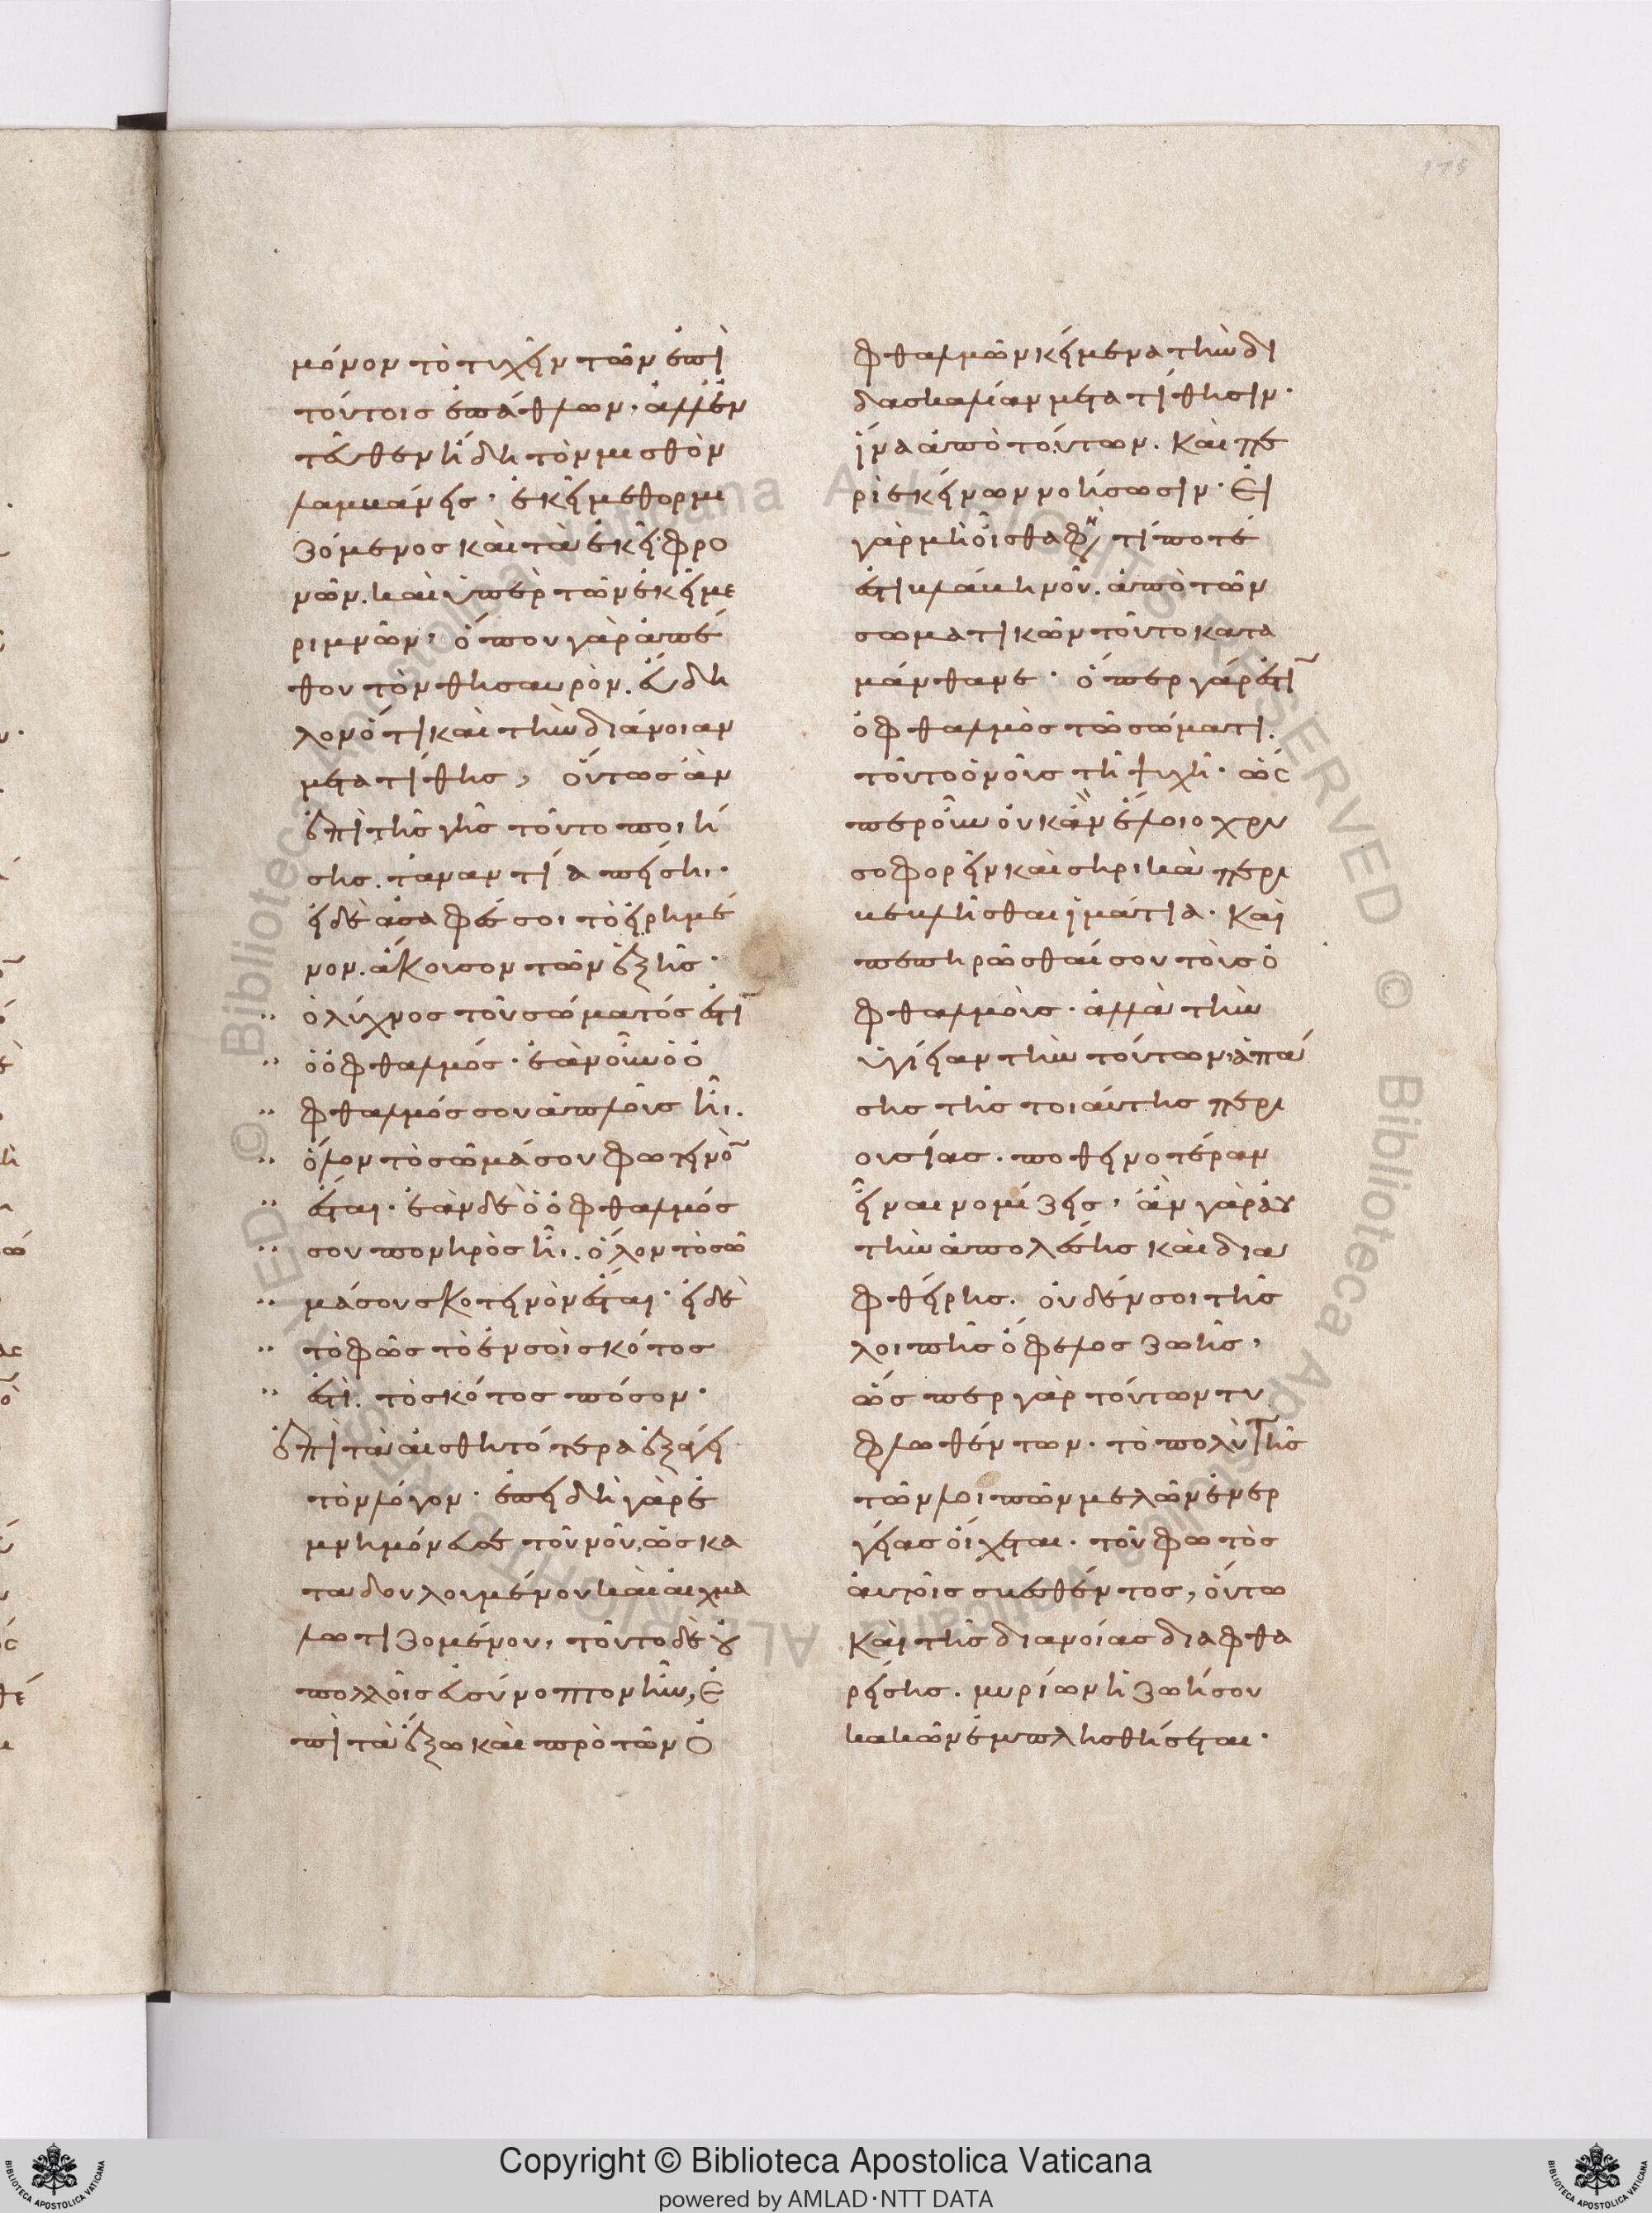 μόνον τὸ τυχεῖν τῶν ἐπὶ
τούτοις ἐπάθλων, ἀλλ' ἐν
τεῦθεν ἤδη τὸν μισθὸν
λαμβάνεις, ἐκεῖ μεθορμι
ζόμενος καὶ τὰ ἐκεῖ φρο
νῶν. καὶ ὑπὲρ τῶν ἐκεῖ με
ριμνῶν, ὅπου γὰρ ἀπέ
θου τὸν θησαυρὸν. εὔδη
λον ὅτι καὶ τὴν διάνοιαν
μετατίθης, οὕτως ἂν
ἐπὶ τῆς γῆς τοῦτο ποιή
σης. τἀναντία πείση·
εἰ δὲ ἀσαφές σοι τὸ εἰρημέ
νον. ἄκουσον τῶν ἑξῆς·
ὁ λύχνος τοῦ σώματός ἐστιν
ὁ ὀφθαλμός· ἐὰν οὖν ὁ ὀ
φθαλμός σου ἁπλοῦς ἦι.
ὅλον τὸ σῶμά σου φωτεινὸν
ἔσται· ἐὰν δὲ ὁ ὀφθαλμός
σου πονηρὸς ἦι. ὅλον τὸ σῶ
μά σου σκοτεινὸν ἔσται· εἰ δὲ
τὸ φῶς τὸ ἐν σοὶ σκότος
ἐστὶ. τὸ σκότος πόσον·
ἐπὶ τὰ αἰσθητότερα ἐξάγει
τὸν λόγον· ἐπειδὴ γὰρ ἐ
μνημόνευσε τοῦ νοῦ, ὡς κα
ταδουλουμένου καὶ αἰχμα
λωτιζομένου, τοῦτο δὲ οὐ
πολλοῖς εὐσύνοπτον ἦν, ἐ
πὶ τὰ ἔξω καὶ πρὸ τῶν ὀ
φθαλμῶν κείμενα τὴν δι
δασκαλίαν μετατίθησιν·
ἵνα ἀπὸ τούτων. καὶ πε
ρὶ ἐκείνων νοήσωσιν· Εἰ
γὰρ μὴ οἶσθα φησὶ τί ποτέ
ἐστι βλάβη νοῦ. ἀπὸ τῶν
σωματικῶν τοῦτο κατα
μάνθανε· ὅπερ γάρ ἐστιν
ὀφθαλμὸς τῶ σώματι.
τοῦτο ὁ νοῦς τῆ ψυχῆ· ὥς
περ οὖν οὐκ ἂν ἕλοιο χρυ
σοφορεῖν καὶ σηρικὰ περι
βεβλῆσθαι ἱμάτια· Καὶ
πεπηρῶσθαί σου τοὺς ὀ
φθαλμοὺς· ἀλλὰ τὴν
ὑγίειαν τὴν τούτων, ἁπά
σης τῆς τοιαύτης περι
ουσίας. ποθεινοτέραν
εἶναι νομίζεις, ἂν γὰρ αὐ
τὴν ἀπολέσης καὶ δια
φθείρης. οὐδέν σοι τῆς
λοιπῆς ὄφελος ζωῆς,
ὥσπερ γὰρ τούτων τυ
φλωθέντων. τὸ πολὺ τῆς
τῶν λοιπῶν μελῶν ἐνερ
γείας οἴχεται. τοῦ φωτὸς
αὐτοῖς σβεσθέντος, οὕτω
Καὶ τῆς διανοίας διαφθα
ρείσης. μυρίων ἡ ζωή σου
κακῶν ἐμπλησθήσεται·
Copyright © Biblioteca Apostolica Vaticana
powered by AMLAD·NTT DATA